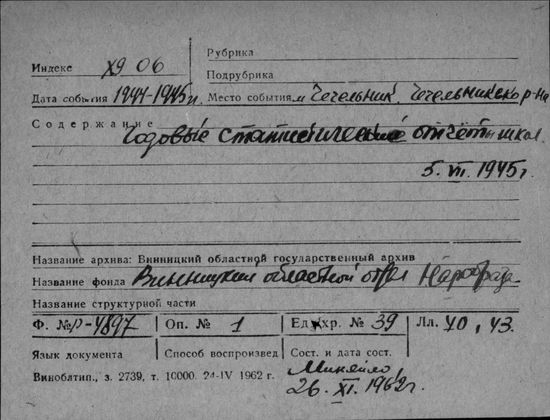 Рубрика
Индекс XЯ 06
Подрубрика
Дата события 1944-1945 г. Место события м Чечельник, Чечельникского р-на
Содержание Годовые статистические отчёты школ.
5. VII. 1945 г.
Название архива: Винницкий областной государственный архив
Название фонда Винницкий областной отдел Наробраза
Название структурной части
Ф. № Р-4897 Оп. № 1 Ед. хр. № 39 Лл. 40, 43.
Язык документа Способ воспроизвед Сост. и дата сост.
Виноблтип., з. 2739, т. 10000. 24-IV 1962 г.
26. XI. 1962г.